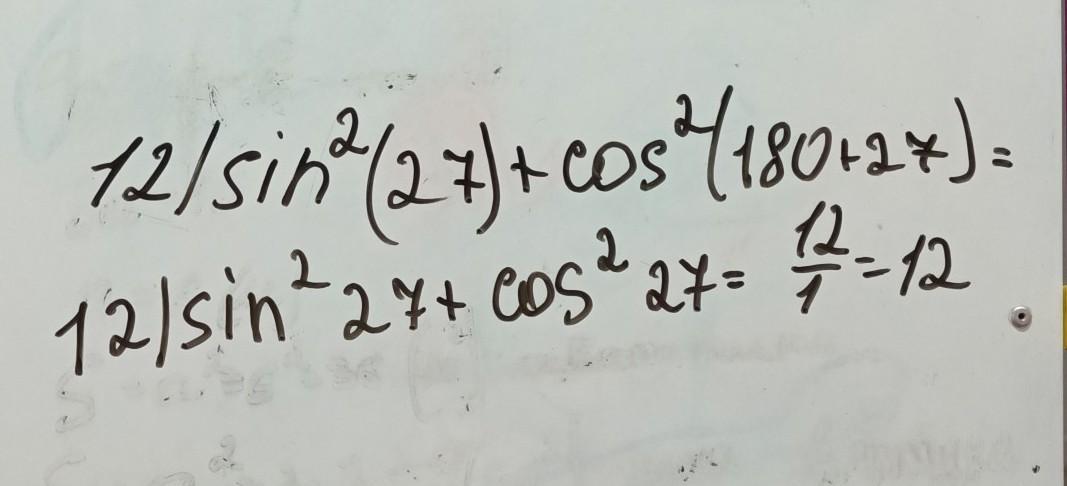 12/sin²(27)+cos²(180+27)=
12/sin² 27+ cos² 27= 12/1 =12